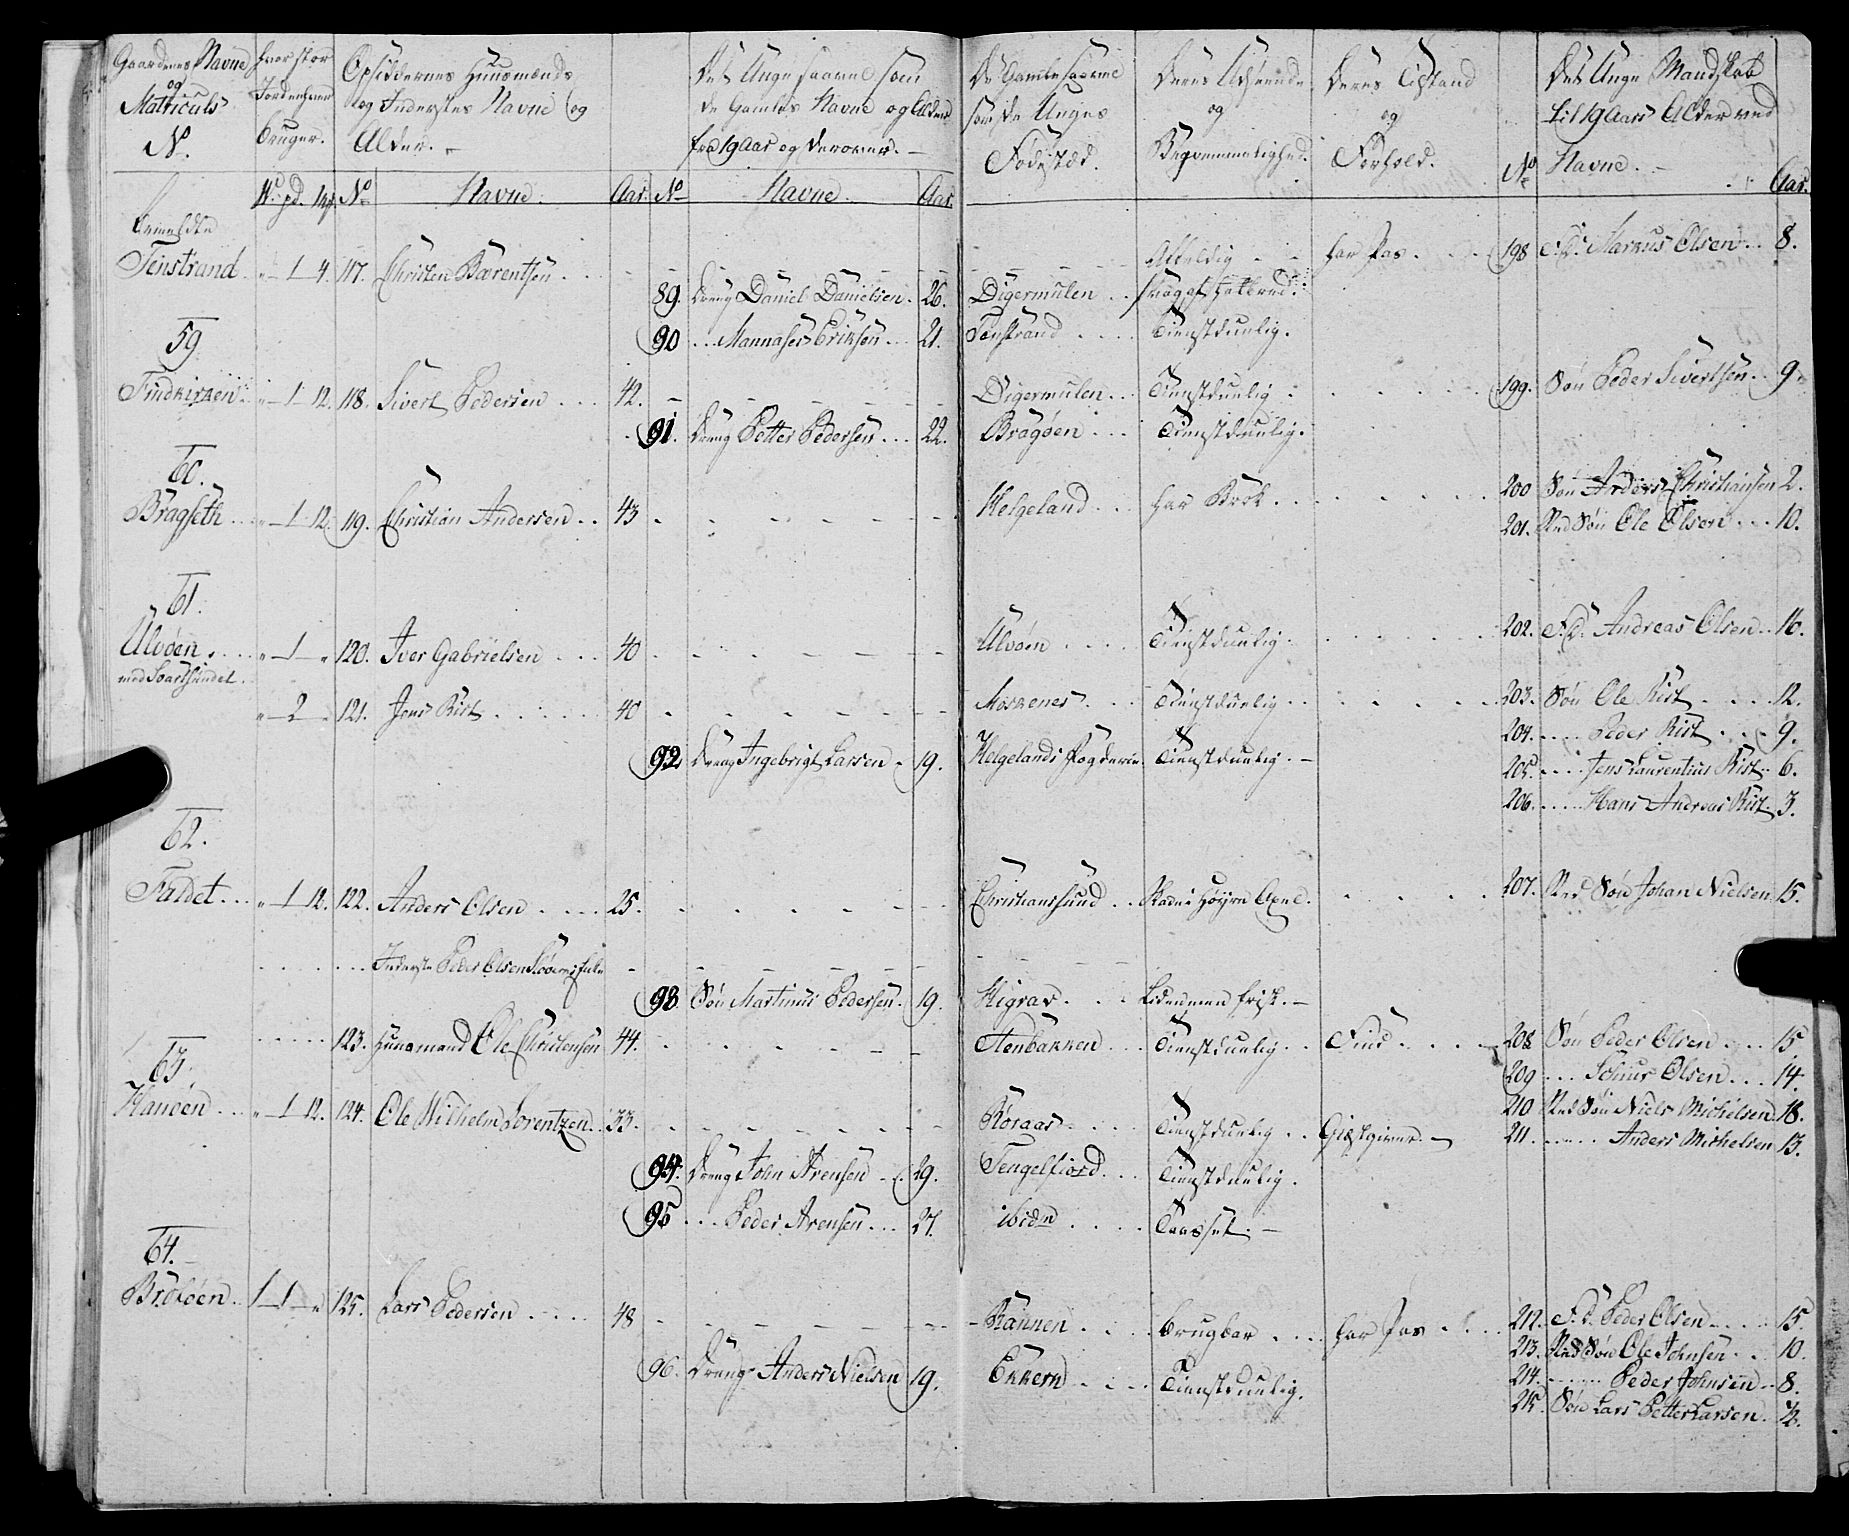 Gaardenes Navne og Matriculs No.
hvor stor Jordenhver bruger.
Opsiddernes Huusmænds og Inderstes Navne og Alder.
Det Unge saavel som de Gamles Navne og Alder fra 19 Aar og derover.
De Gamle saavel som de Unges Fødestæd.
Deres Udseende og Beqvemmelighed.
Deres Tilstand og Forhold.
Det Unge Mandskab til 19 Aars Alder ved Navne.
W. pd. mk No Navne. Aar. No Navne. Aar. No Aar.
Tenstrand " 1 4. 117. Christen Bærentsen har Pas 198 S.D. Markus Olsen 8.
89. Dreng Daniel Danielsen 26. Digermulen
90 Mannases Eriksen 21. Tenstrand Tienstduelig.
59
Findkirken " 1 12. 118. Sivert Pedersen 42. Digermulen Tienstduelig 199. Søn Peder Sivertsen 9.
91. Dreng Petter Pedersen 22. Bragøen Tienstduelig.
60.
Bragseth " 1 12. 119. Christian Andersen 43 Helgeland har Brok 200 Søn Anders Christiansen 2.
201. Sted Søn Ole Olsen 10.
61.
Ulvøen " 1 " 120. Iver Gabrielsen 40 Ulvøen Tienstduelig 202. S.D. Andreas Olsen 16.
med Svartsundet
" 2 " 121. Jens Rist 40 Moskenes Tienstduelig 203. Søn Ole Rist 12.
204. Peder Rist 9.
92. Dreng Ingebrigt Larsen 19. Helgelands Fogderie Tienstduelig. 205. Jens Laurentius Rist 6.
206. Hans Andreas Rist 3.
62.
Faldet " 1 12. 122. Anders Olsen 25. Christiansund Skade i Høyre Axel. 207. Sted Søn Johan Nielsen 15.
Inderste Peder Olsen
93 Søn Martinus Pedersen 19. Higrav Liden men frisk.
123. Huusmand Ole Christensen 44. Stenbakken Tienstduelig Find 208 Søn Peder Olsen 15
63. 209 Schiur Olsen 14.
Hanøen " 1 12. 124. Ole Wilhelm Lorentzen 33. Røraas Tienstduelig Giæstgiver 210 Sted Søn Niels Michelsen 18.
211. Anders Michelsen 13.
94. Dreng John Arensen 29. Tengelfiord Tienstduelig.
95 Peder Arensen 27. ibidm Taasset.
64.
Brøtøen 1 1 " 125. Lars Pedersen 48 Rannen brugbar har Pas 212. S.D. Peder Olsen 15.
213. Sted Søn Ole Johnsen 10.
96. Dreng Anders Nielsen 19. Ekkern Tienstduelig. 214. Peder Johnsen 8.
215. Søn Lars Petter Larsen ½.